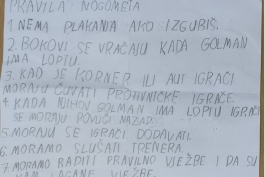 PRAVILA NOGOMETA
1. NEMA PLAKANJA AKO IZGUBIŠ.
2. BOKOVI SE VRAĆAJU KADA GOLMAN
IMA LOPTU.
3. KAD JE KORNER ILI AUT IGRAČI
MORAJU ČUVATI PROTIVNIČKE IGRAČE.
4. KADA NJIHOV GOLMAN IMA LOPTU IGRAČI
SE MORAJU POVUĆI NAZAD.
5. MORAJU SE IGRAČI DODAVATI.
6. MORAMO SLUŠATI TRENERA.
7. MORAMO RADITI PRAVILNO VJEŽBE I DA SU
NAM LAGANE VJEŽBE